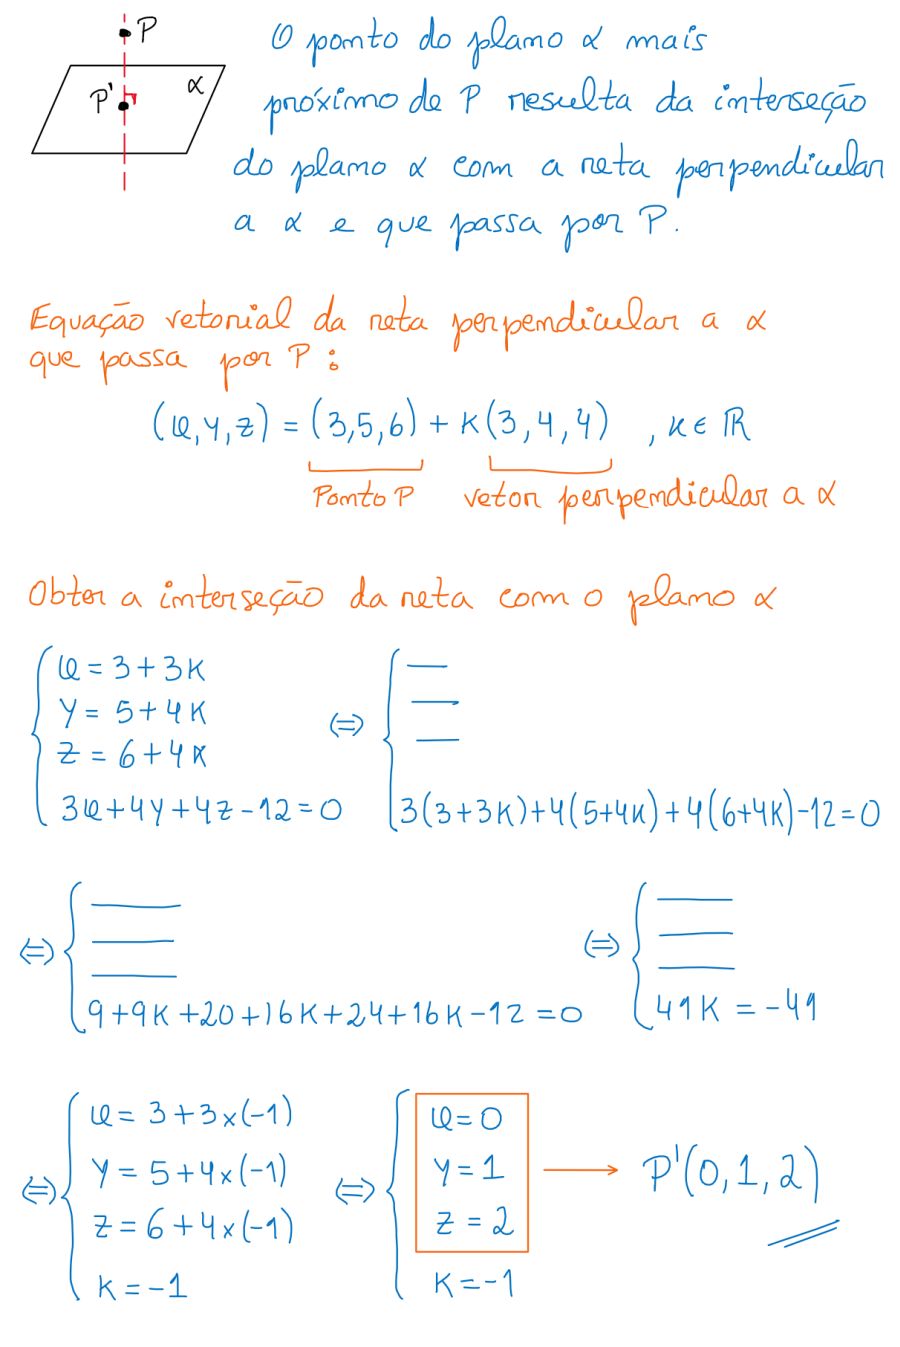 P
P' α
O ponto do plano α mais
próximo de P resulta da interseção
do plano α com a reta perpendicular
a α e que passa por P.
Equação vetorial da reta perpendicular a α
que passa por P:
(x,y,z) = (3,5,6) + k(3,4,4) , k∈ℝ
Ponto P vetor perpendicular a α
Obter a interseção da reta com o plano α
x = 3+3k
y = 5+4k
z = 6+4k
3x+4y+4z-12=0 ⇔ 3(3+3k)+4(5+4k)+4(6+4k)-12=0
⇔ 9+9k+20+16k+24+16k-12=0 ⇔ 41k = -41
x = 3+3×(-1) x=0
⇔ y = 5+4×(-1) ⇔ y=1 → P'(0,1,2)
z = 6+4×(-1) z=2
k=-1 k=-1